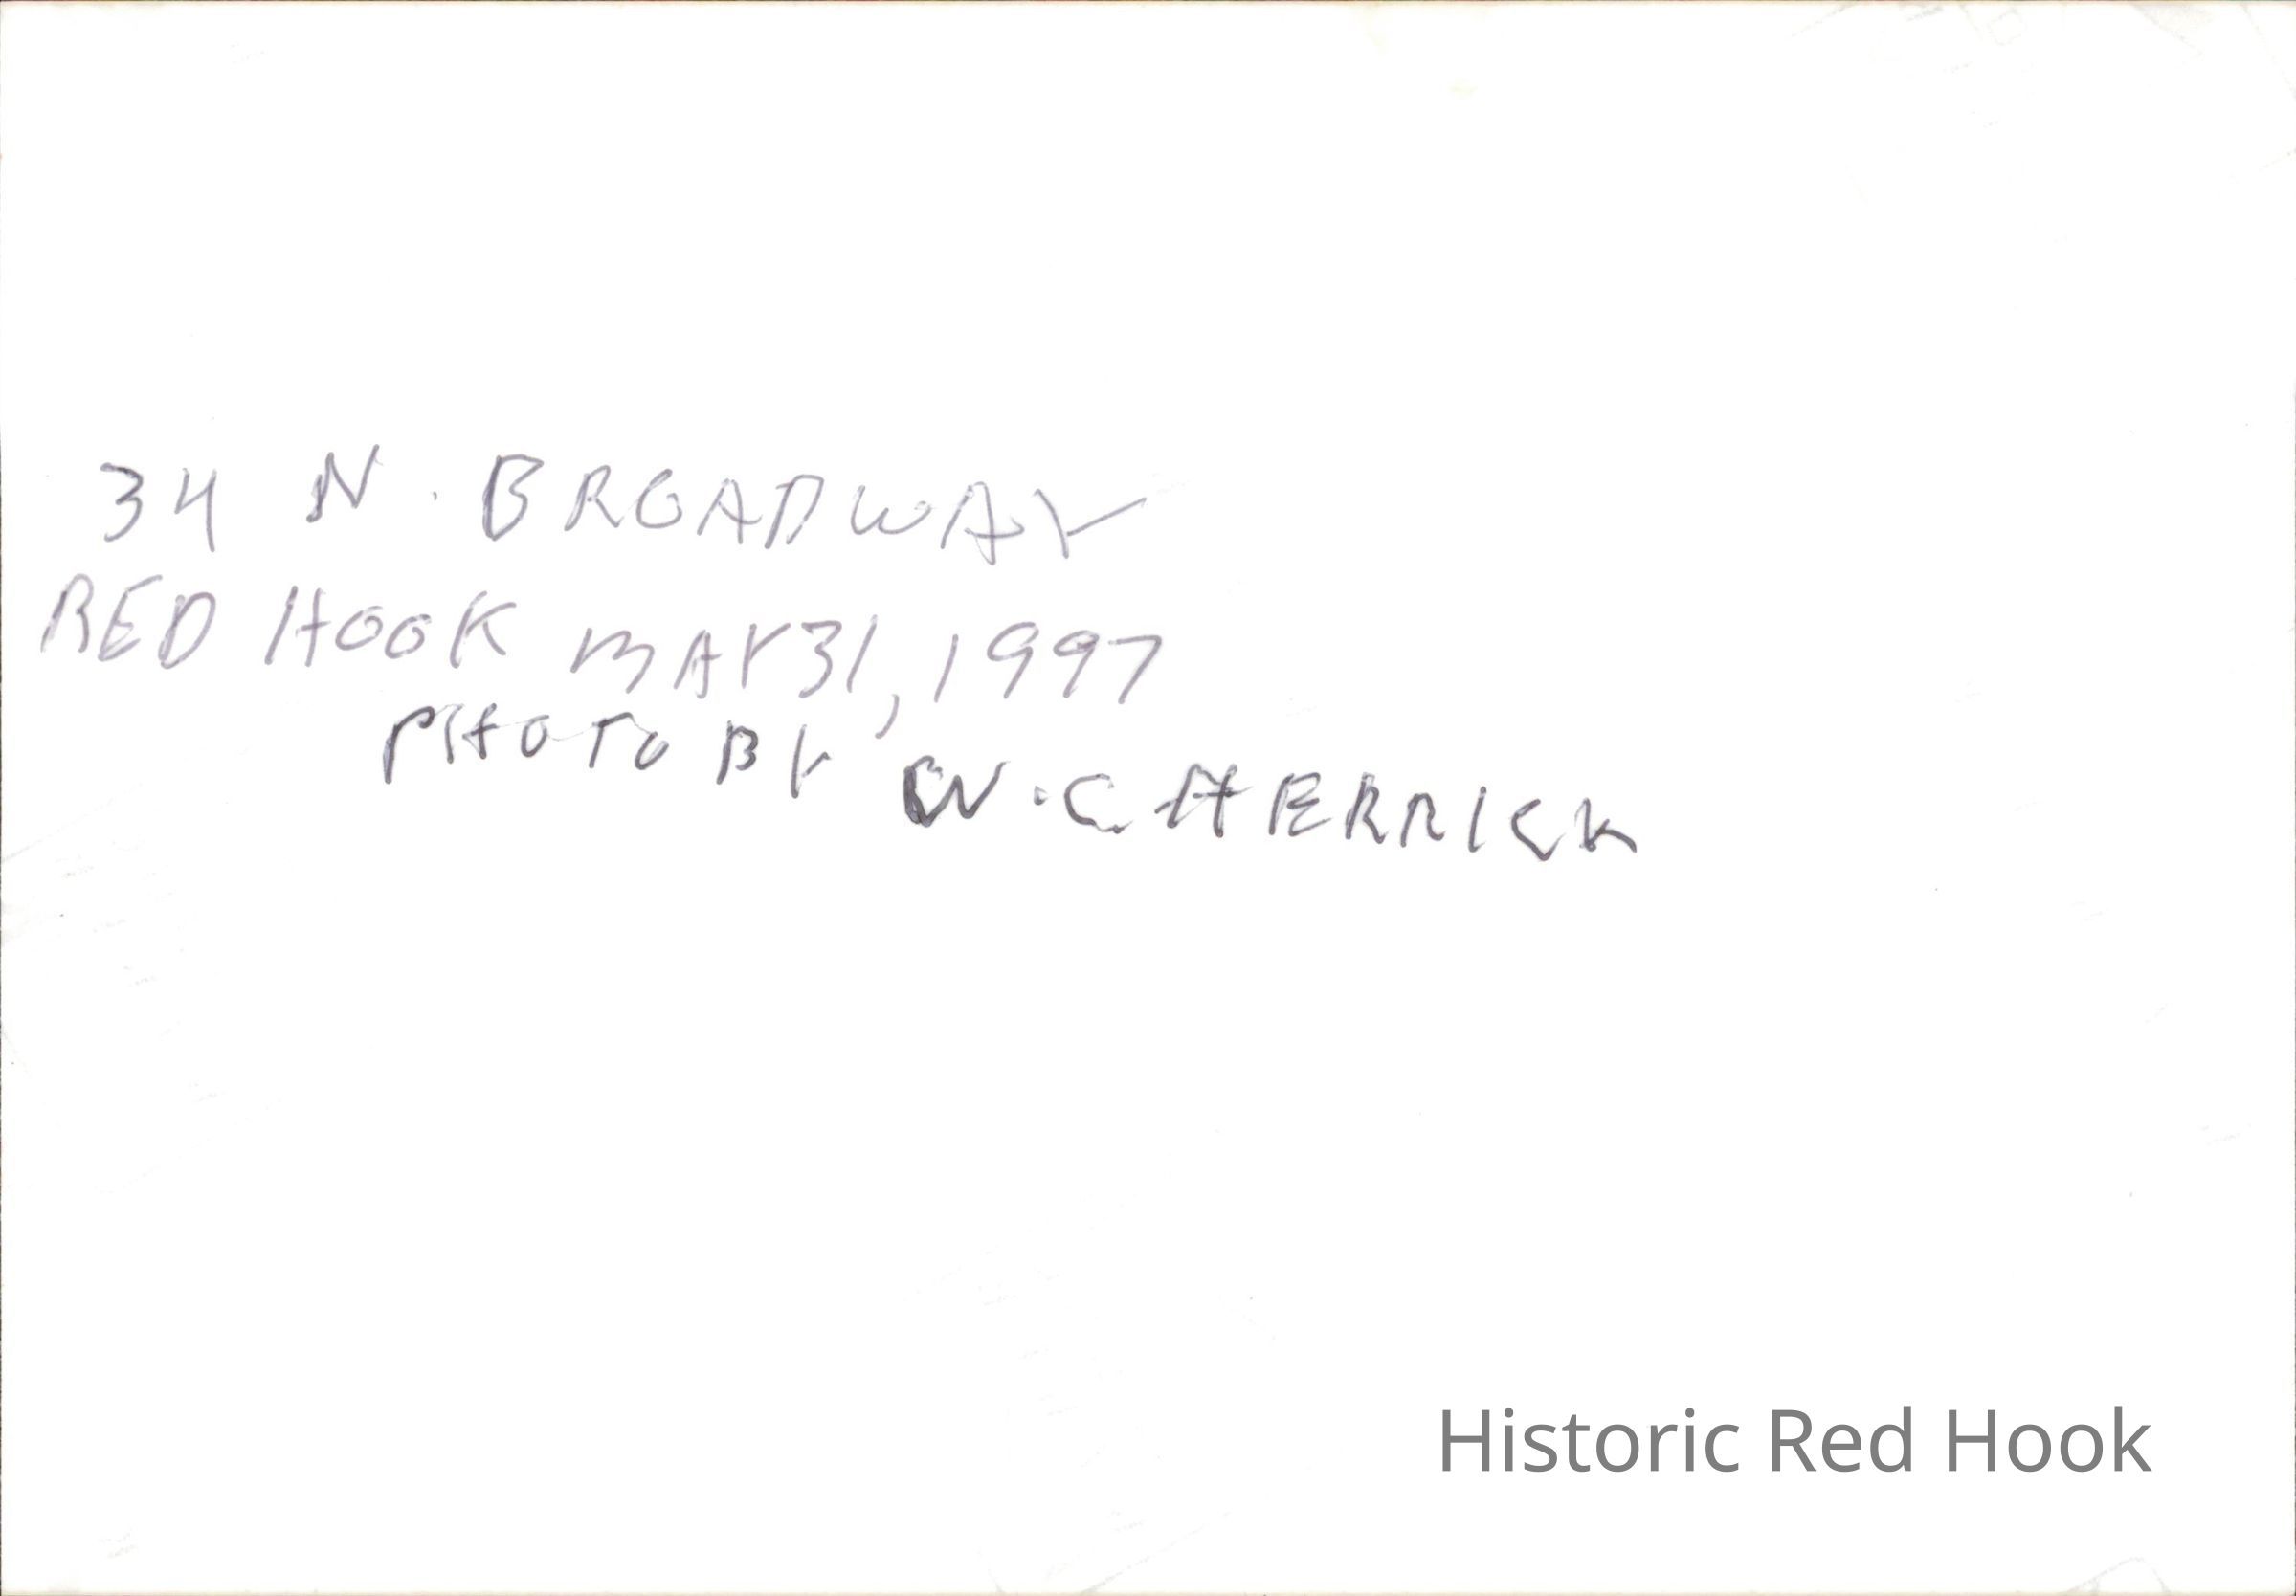 34 N. BROADWAY
RED HOOK MAY 31, 1997
PHOTO BY W.C HERRICK
Historic Red Hook